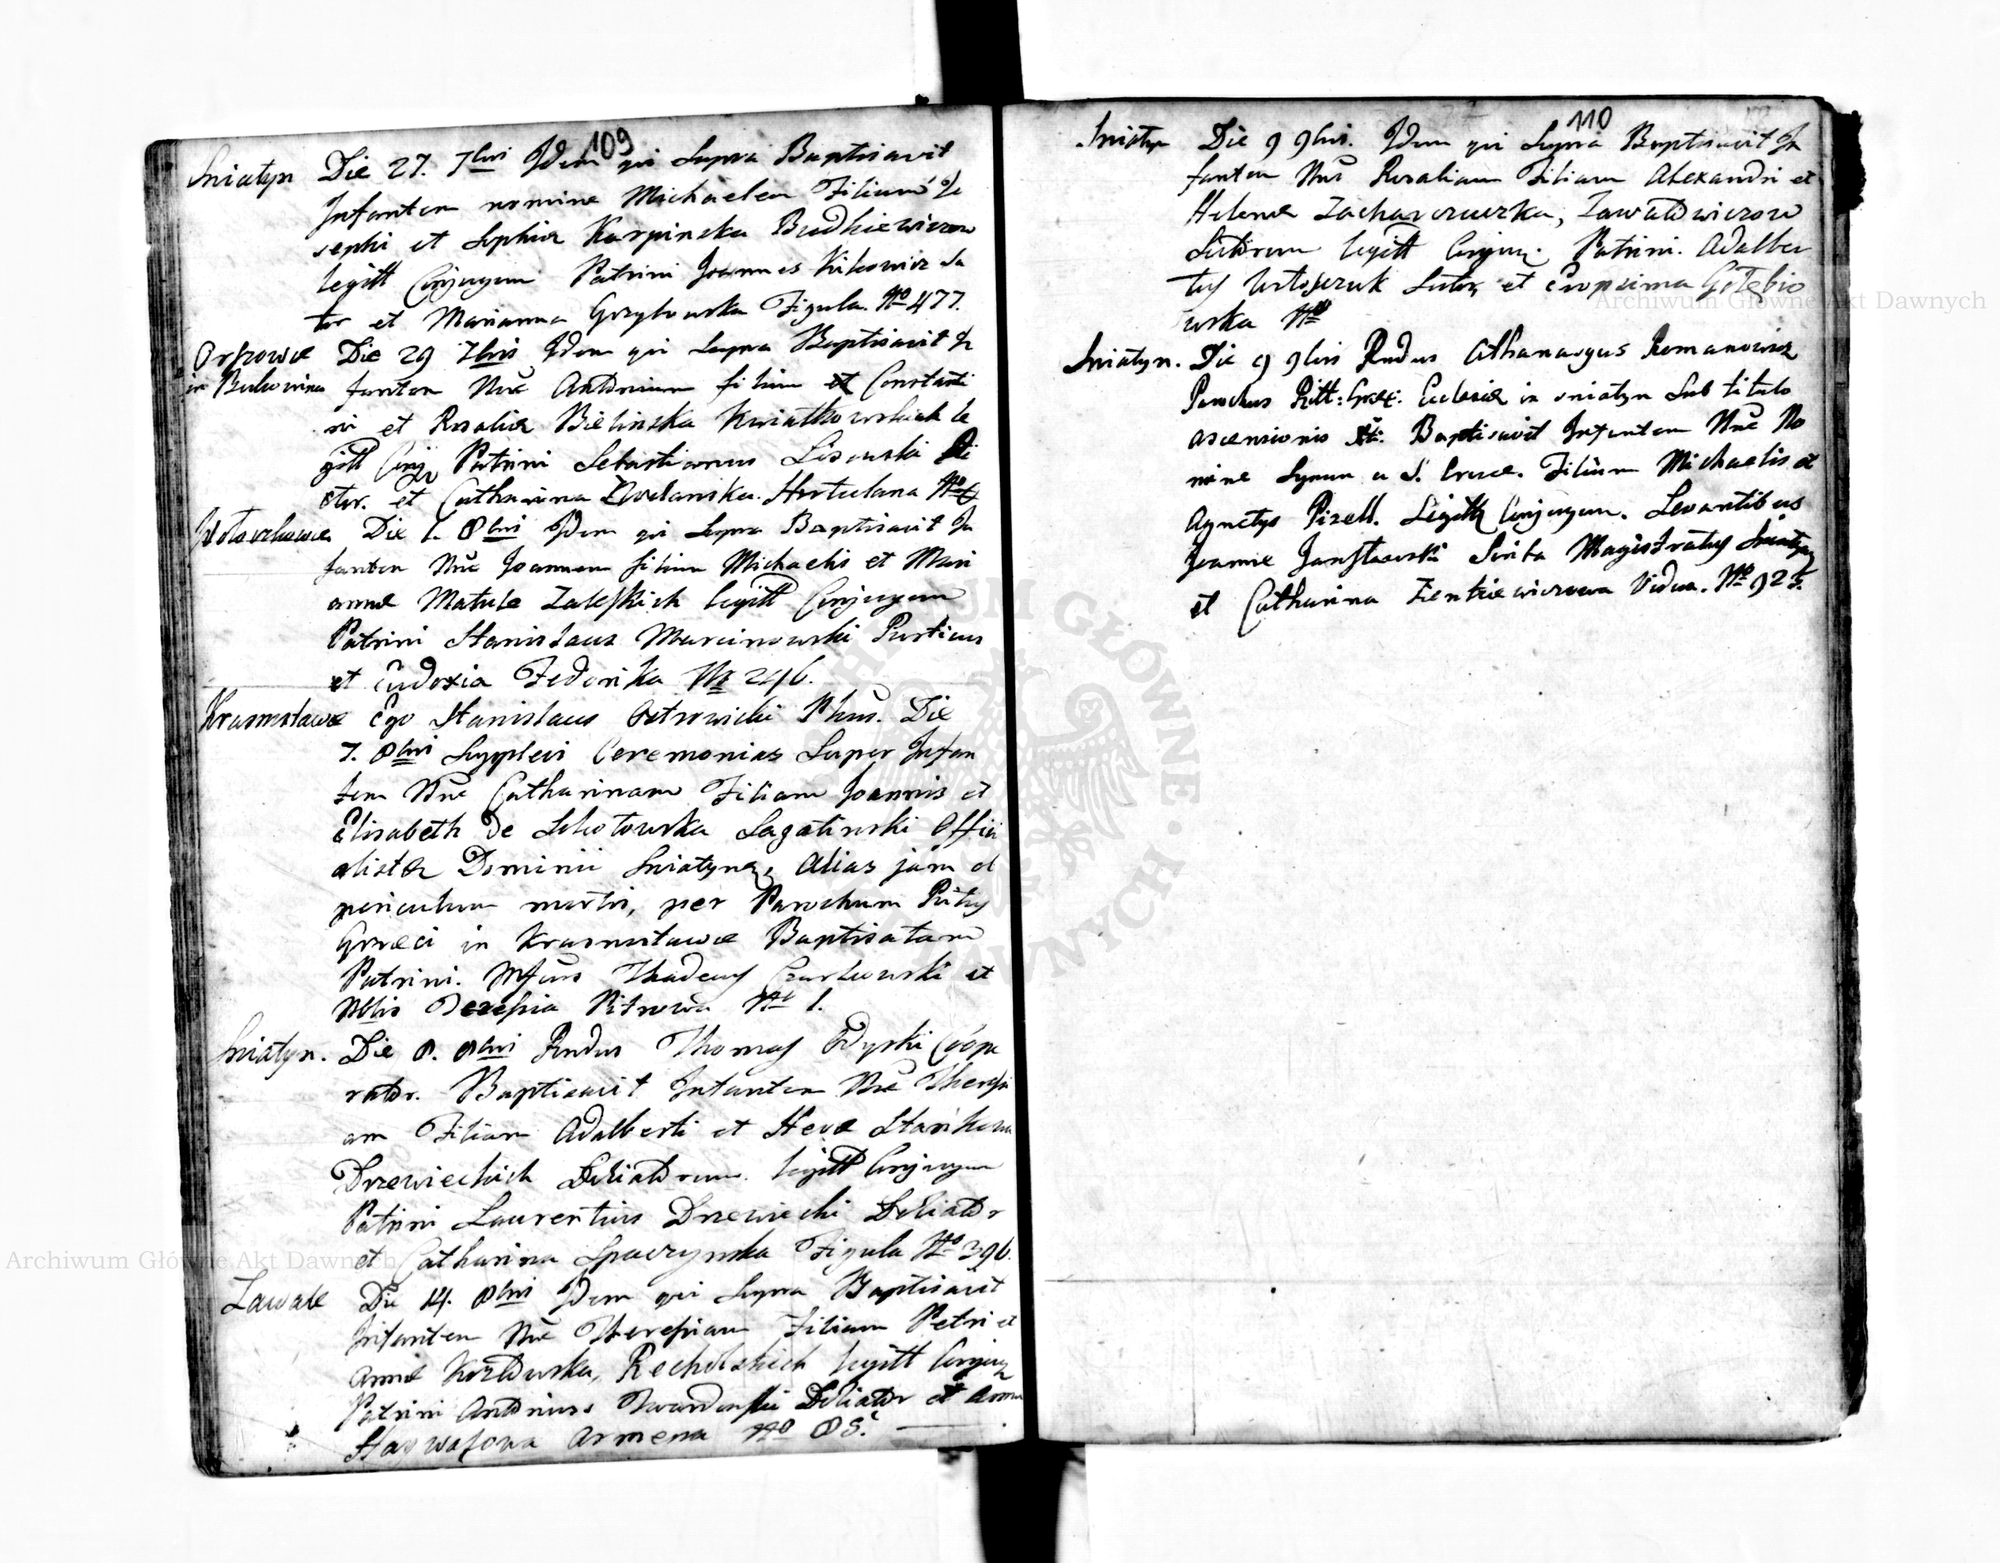 109
Sniatyn Die 27. 7bris Idem qui Supra Baptisavit
Infantem nomine Michaelem Filium Jo
sephi et Sophiæ Karpinska Budkiewiczow
legitt Conjugum Patrini Joannes Kikowicz Su
tor et Marianna Grzybowska Figula. No 477.
Orszowce Die 29 7bris Idem qui Supra Baptisavit In
in Bukowina fantem Nne Antonium filium et Constanti
ni et Rosaliæ Bielinska Kwiatkowskich le
gitt Conj. Patrini Sebastianus Lisowski
ctor. et Catharina Hortulana No
Wołczkowce Die 1. 8bri Idem qui Supra Baptisavit In
fantem Nne Joannem filium Michaelis et Mari
annæ Matule Zaleskich legitt Conjugum
Patrini Stanislaus Marcinowski Rusticus
et Eudoxia Fedorika No 246.
Krasnostawce Ego Stanislaus Ostrowicki Phus. Die
7. 8bri Supplevi Ceremonias Super Infan
tem Nne Catharinam Filiam Joannis et
Elisabeth de Sokołowska Sagatinski Offici
alistæ Dominii Sniatyn, alias jam ob
periculum mortis, per Parochum Ritus
Græci in Krasnostawce Baptisatam
Patrini. Mfcus Thadeus Czarkowski et
Nblis Teresia Pitrowa No 1.
Sniatyn. Die 8. 8bri Rndus Thomas Dyski Coope
rator. Baptisavit Infantem Nne Theresi
am Filiam Adalberti et Hevæ Stankowa
Drzewieckich Doliatorum legitt Conjugum
Patrini Laurentius Drzewiecki Doliator
et Catharina Spaczynska Figula No 396.
Zawale Die 14. 8bris Idem qui Supra Baptisavit
Infantem Nne Theresiam Filiam Petri et
Annæ Kozłowska, Recholskich legitt Conjug
Patrini Antonius Twardowski Doliator et Anna
Armena No 85.
110
Sniatyn Die 9 9bris. Idem qui Supra Baptisavit In
fantem Nne Rosaliam Filiam Alexandri et
Helenæ Zacharczuczka, Zawadowiczow
Sutorum legitt Conjug. Patrini. Adalber
tus Sutor et Eropsima Gołębio
wska No
Sniatyn. Die 9 9bris Rndus Athanasyus Romanowicz
Parochus Ritt: Græc: Ecclesiæ in Sniatyn Sub titulo
Ascensionis Baptisavit Infantem Nne No
mine Symon a S. Cruce. Filium Michaelis et
Agnetys Pizell. Legitt Conjugum. Levantibus
Joanne Scriba Magistratus Sniatyn
et Catharina Zienkiewiczowa Vidua. No 925.
Archiwum Główne Akt Dawnych
Archiwum Główne Akt Dawnych